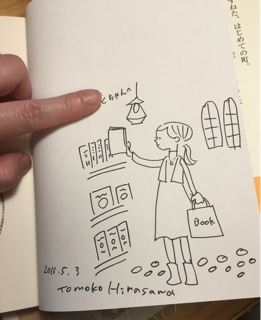 ずねた、はじめての町。
ちゃんへ
Book
2011.5.3
Tomoko Hirasawa